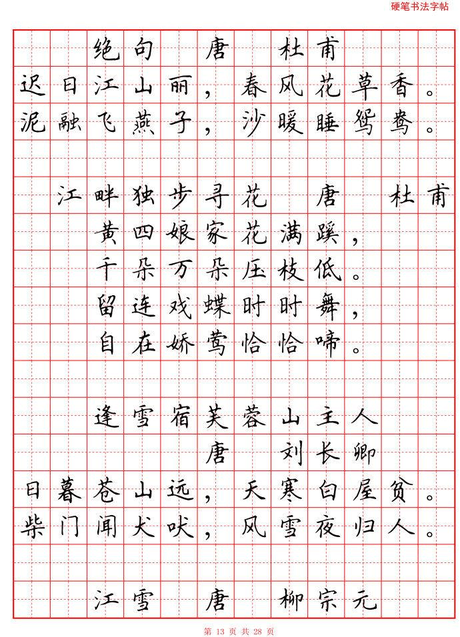 硬笔书法字帖
绝句 唐 杜甫
迟日江山丽，春风花草香。
泥融飞燕子，沙暖睡鸳鸯。
江畔独步寻花 唐 杜甫
黄四娘家花满蹊，
千朵万朵压枝低。
留连戏蝶时时舞，
自在娇莺恰恰啼。
逢雪宿芙蓉山主人
唐 刘长卿
日暮苍山远，天寒白屋贫。
柴门闻犬吠，风雪夜归人。
江雪 唐 柳宗元
第 13 页 共 28 页